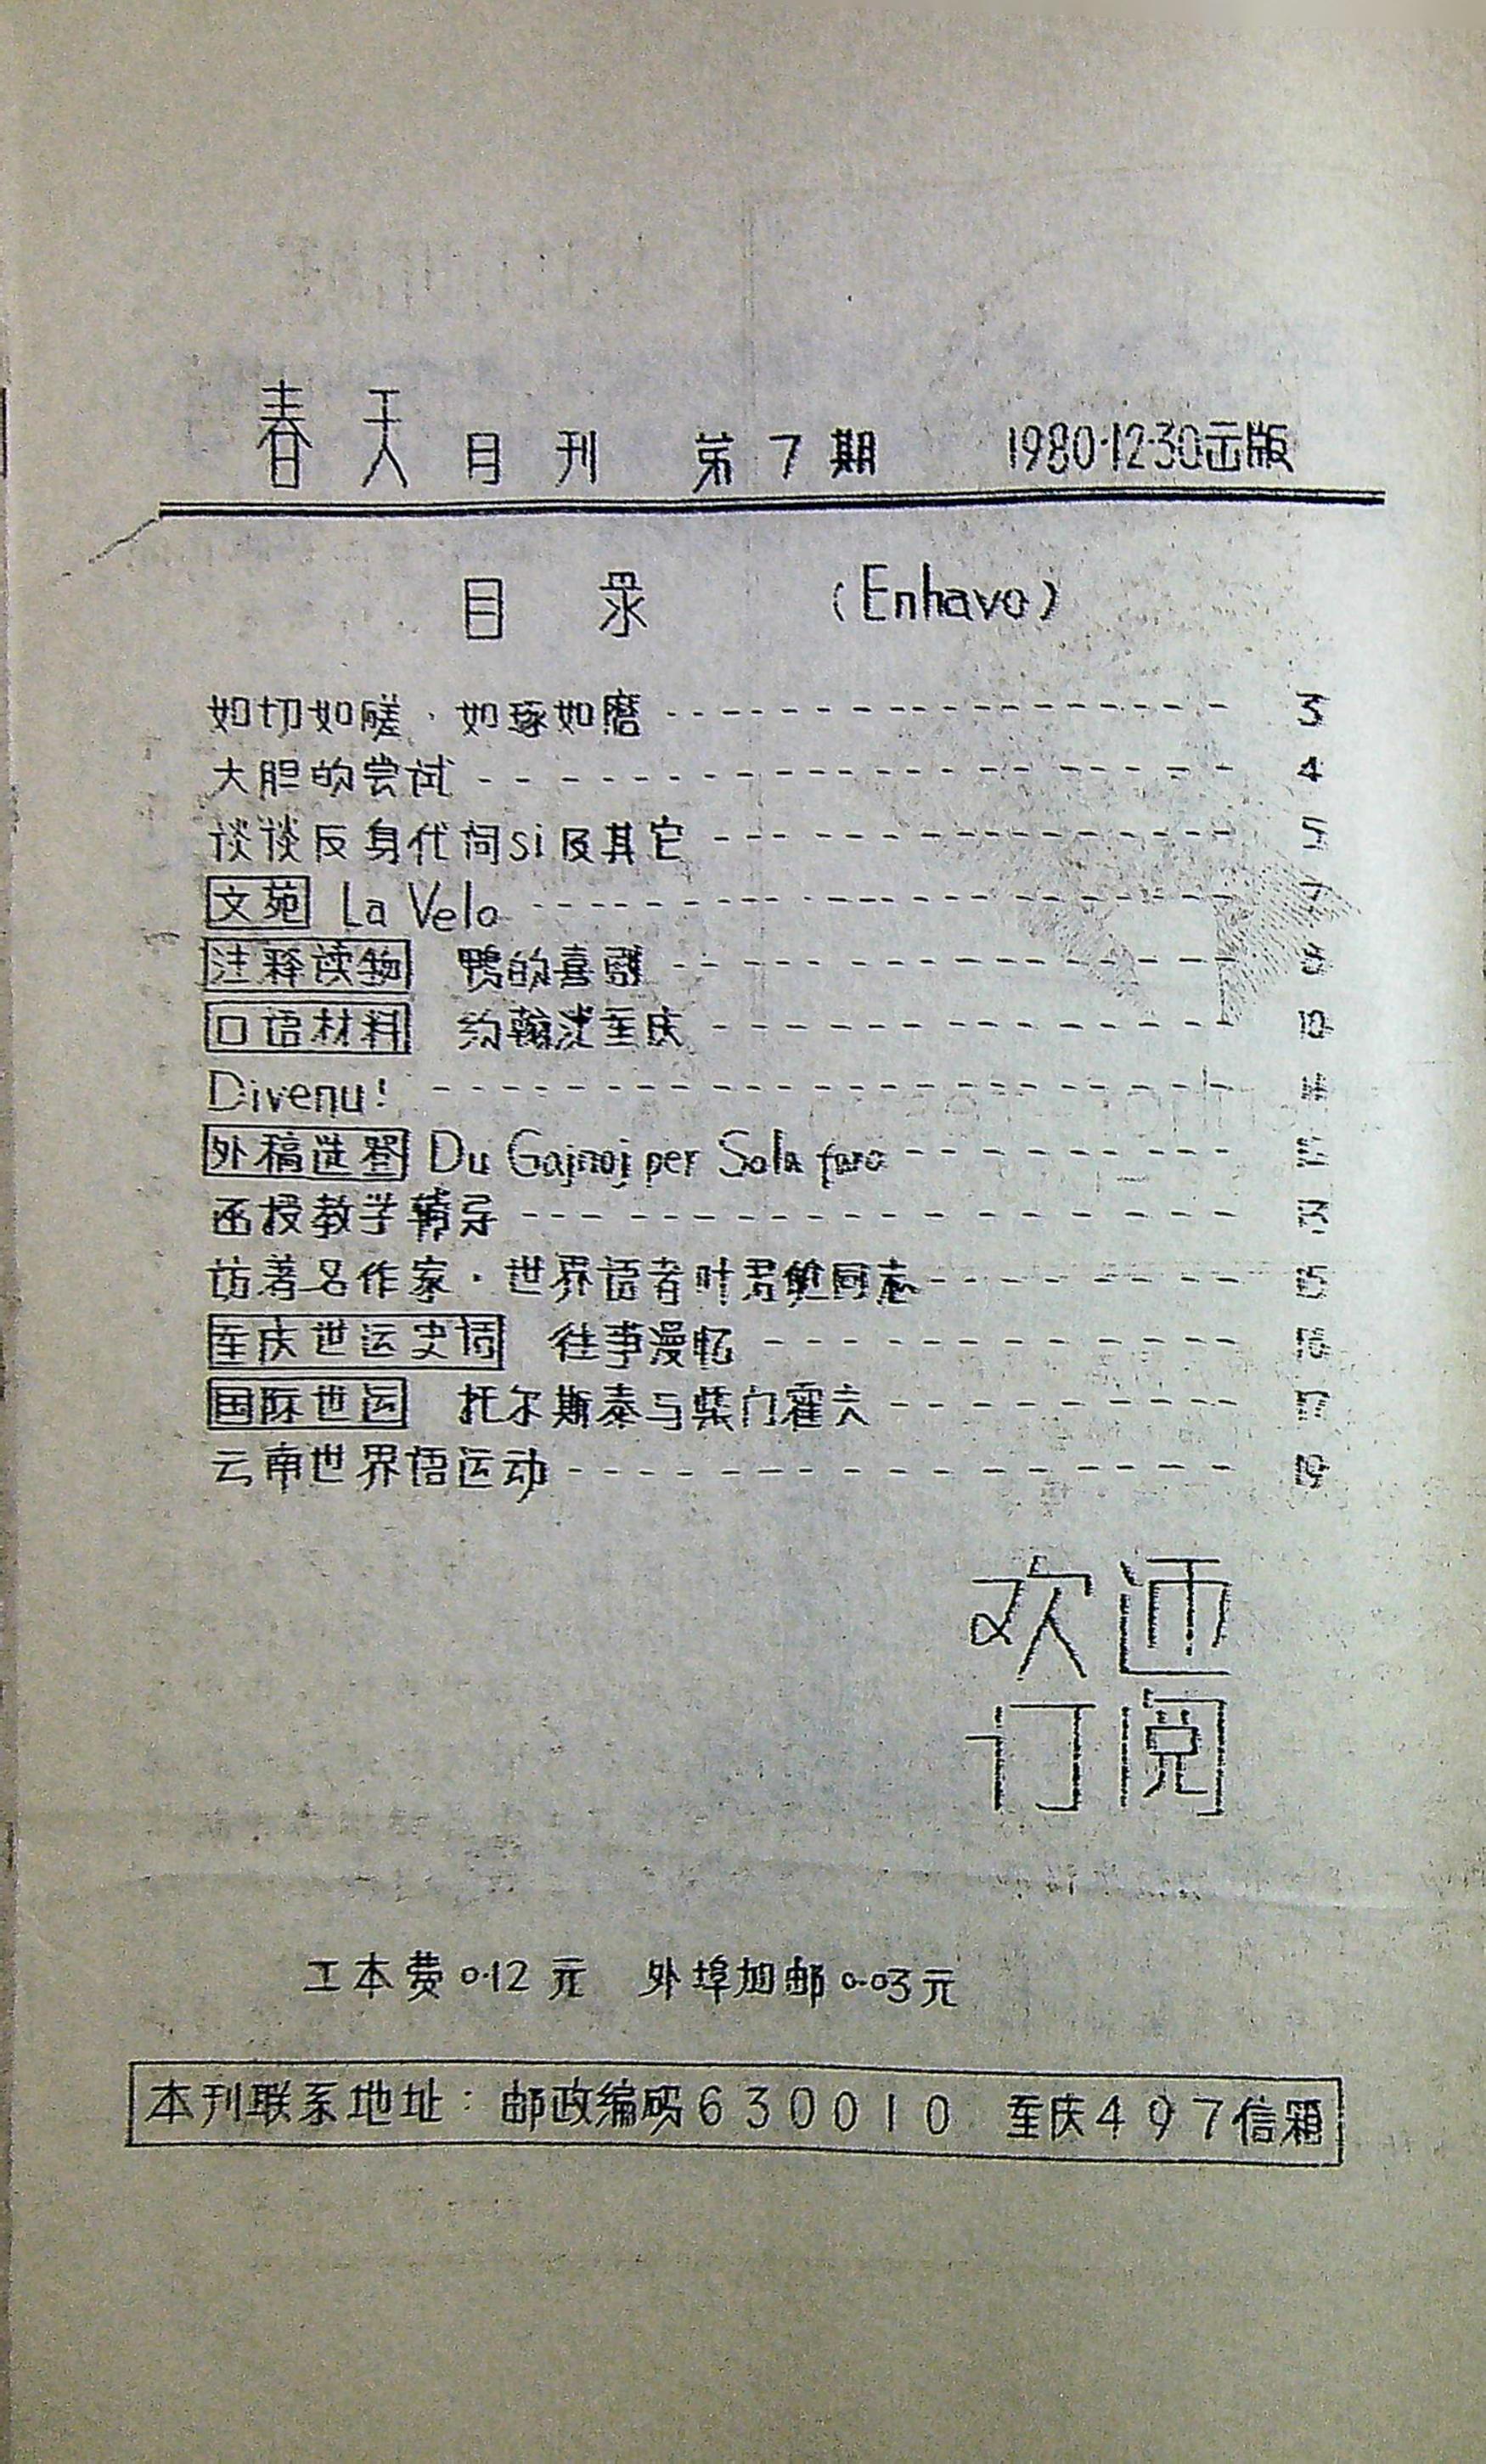 春天月刊 第7期 1980·12·30出版
目录 (Enhavo)
如切如磋·如琢如磨 3
大胆的尝试 4
谈谈反身代词si及其它 5
文苑 La Velo 7
注释读物 鸭的喜剧
口语材料 约翰逛重庆 10
Divenu!
外稿选登 Du Gajnoj per Sola faro
函授教学辅导 13
访著名作家·世界语者叶君健同志 15
重庆世运史话 往事漫忆 16
国际世运 托尔斯泰与柴门霍夫 17
云南世界语运动 19
欢迎
订阅
工本费0.12元 外埠加邮0.03元
本刊联系地址：邮政编码630010 重庆497信箱